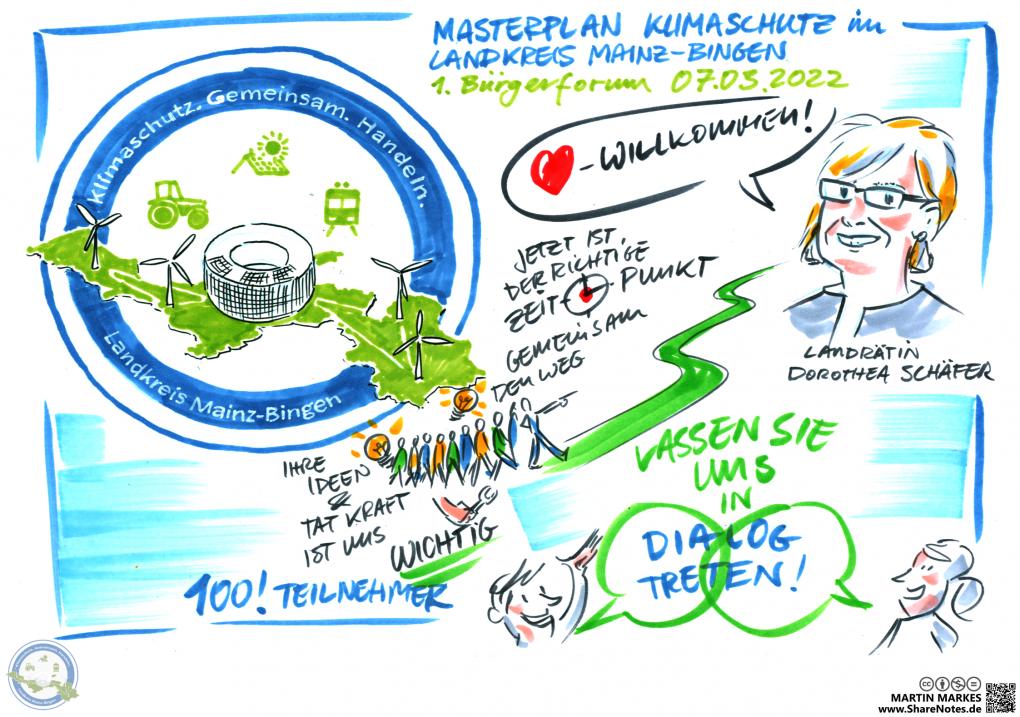 MASTERPLAN KLIMASCHUTZ im
LANDKREIS MAINZ-BINGEN
1. Bürgerforum 07.03.2022
Klimaschutz. Gemeinsam. Handeln.
Landkreis Mainz-Bingen
-WILLKOMMEN!
LANDRÄTIN
DOROTHEA SCHÄFER
JETZT IST
DER RICHTIGE
ZEIT PUNKT
GEMEINSAM
DEN WEG
IHRE
IDEEN
&
TATKRAFT
IST UNS
WICHTIG
100! TEILNEHMER
LASSEN SIE
UNS
IN
DIALOG
TRETEN!
MARTIN MARKES
www.ShareNotes.de